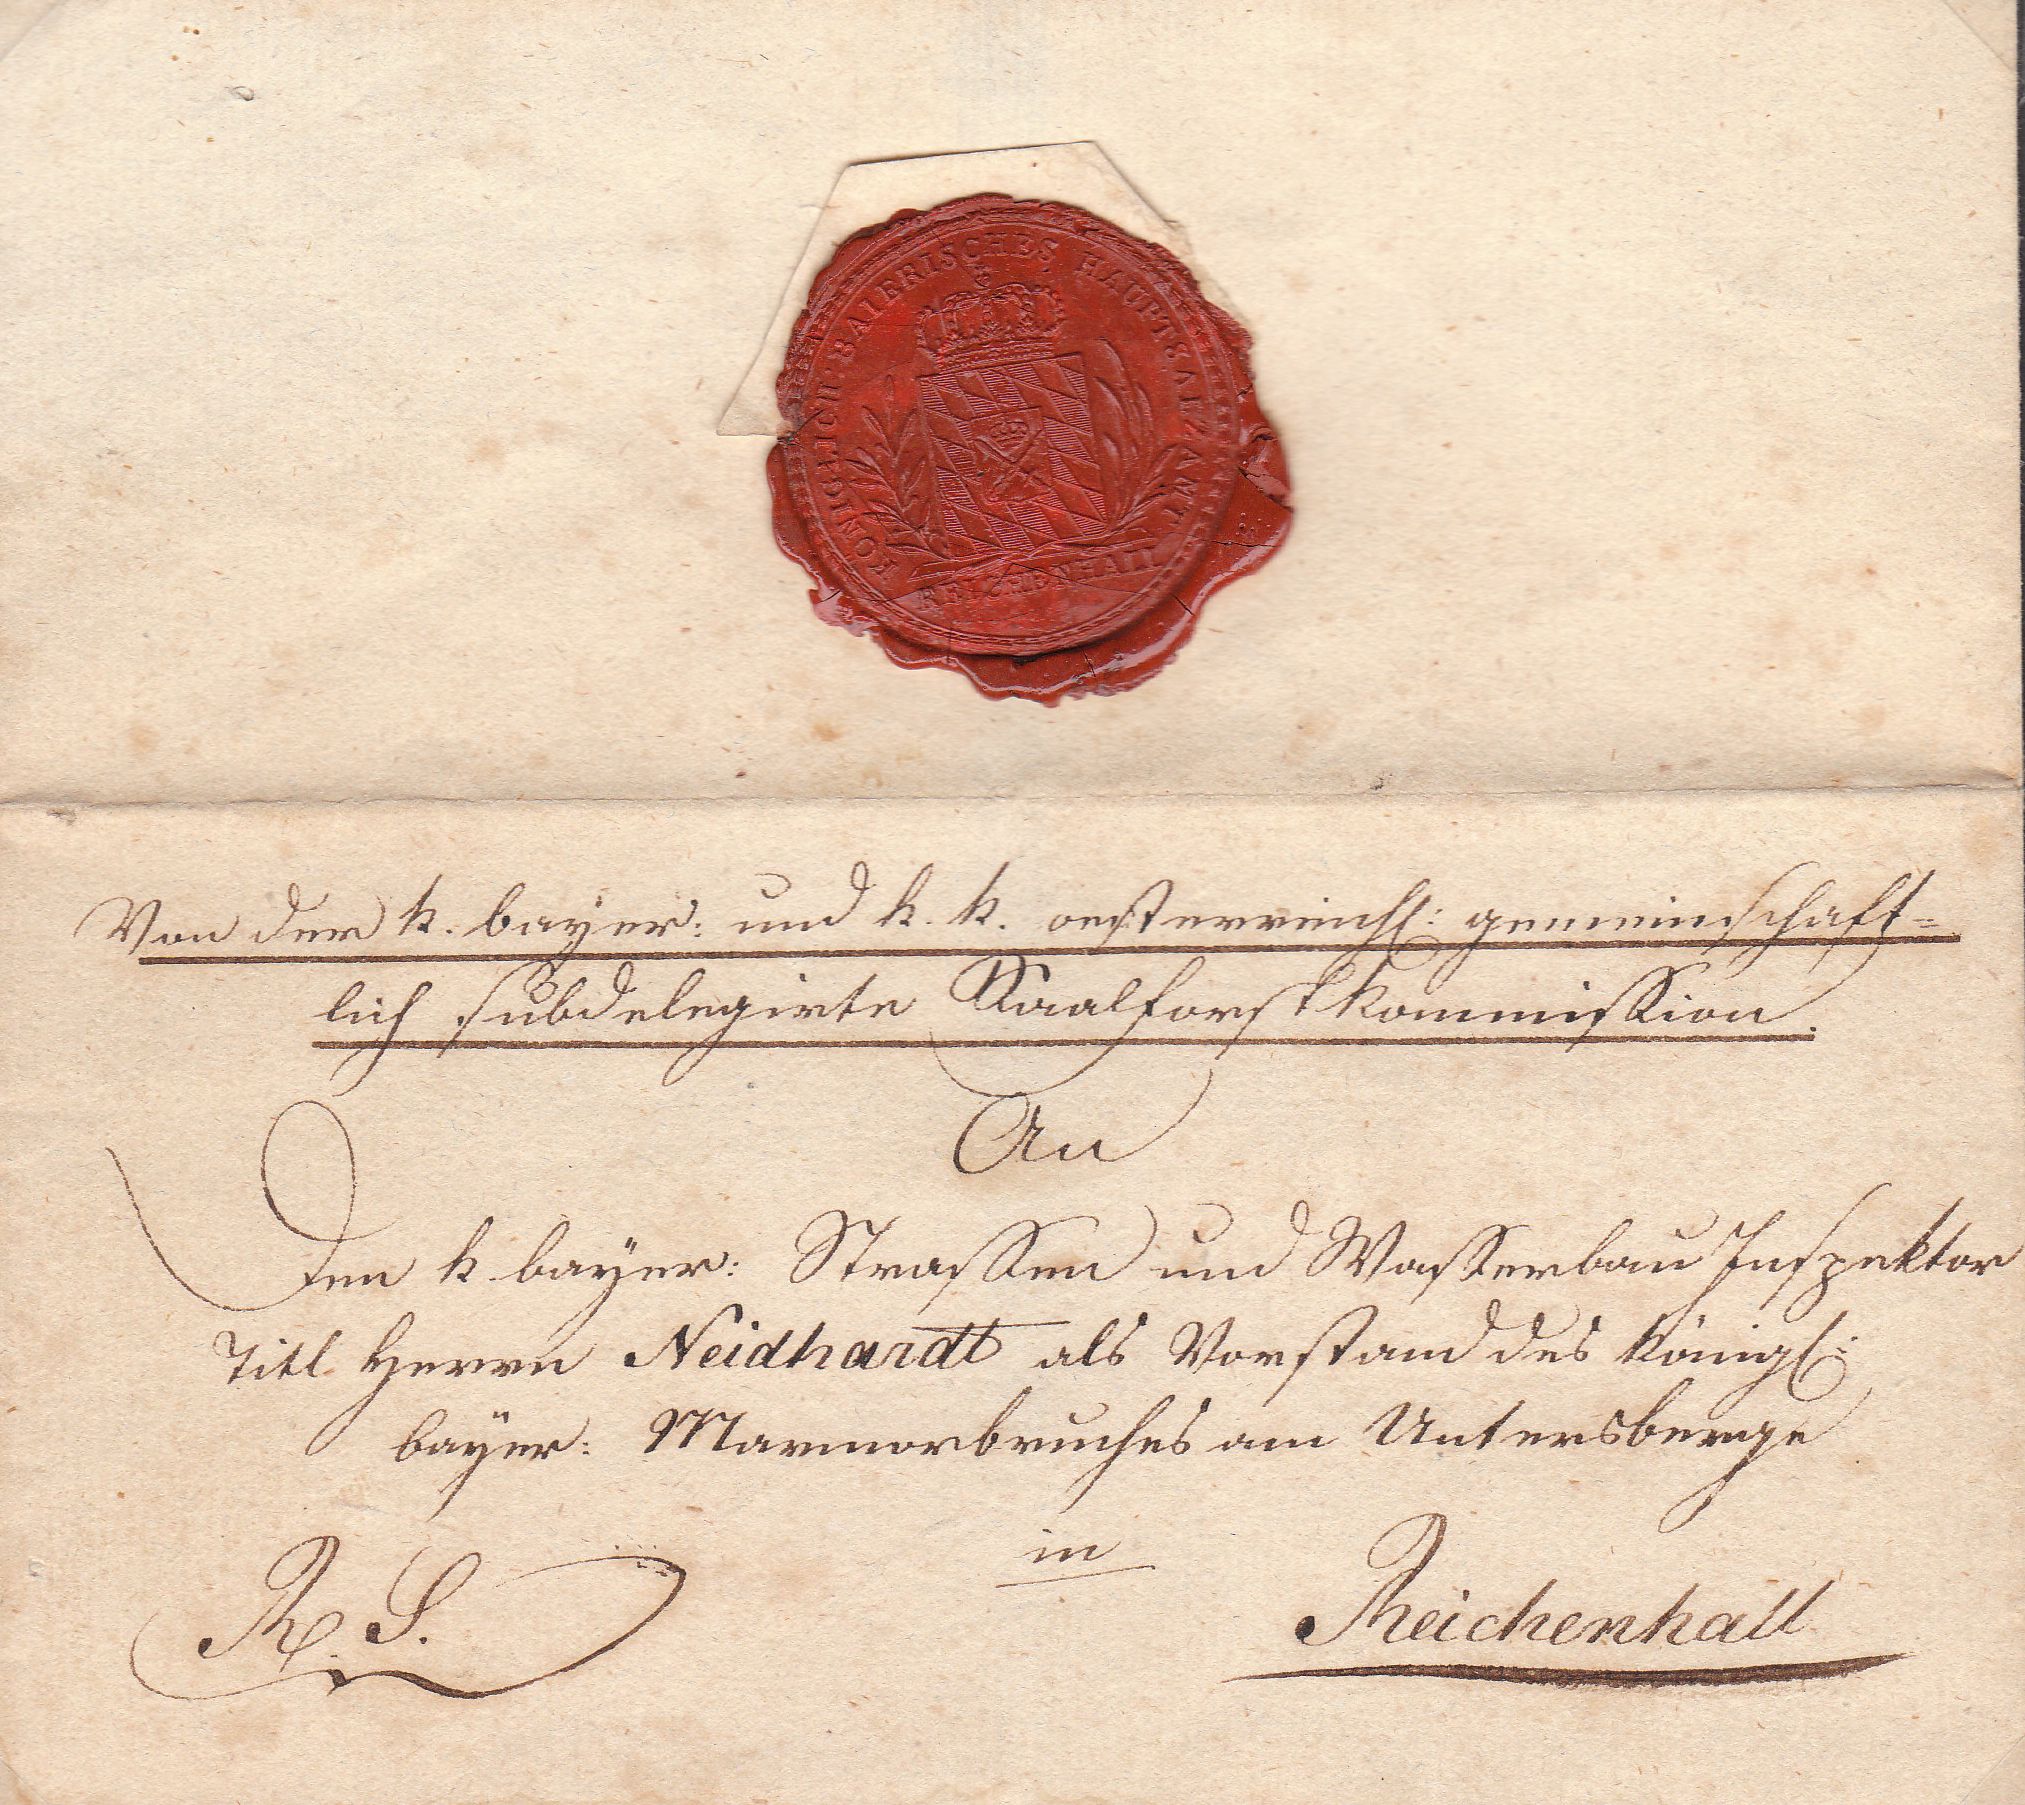 KÖNIGLICH·BAIERISCHES HAUPTSALZAMT
REICHENHALL
Von der k. bayer: und k. k. oesterreichl: gemeinschaft=
lich subdelegirte Saalforstkommission.
An
Den k bayer: Strassen und Wasserbau Inspektor
Titl Herrn Neidhardt als Vorstand des königl:
bayer: Marmorbruches am Untersberge
in
R. S.
Reichenhall